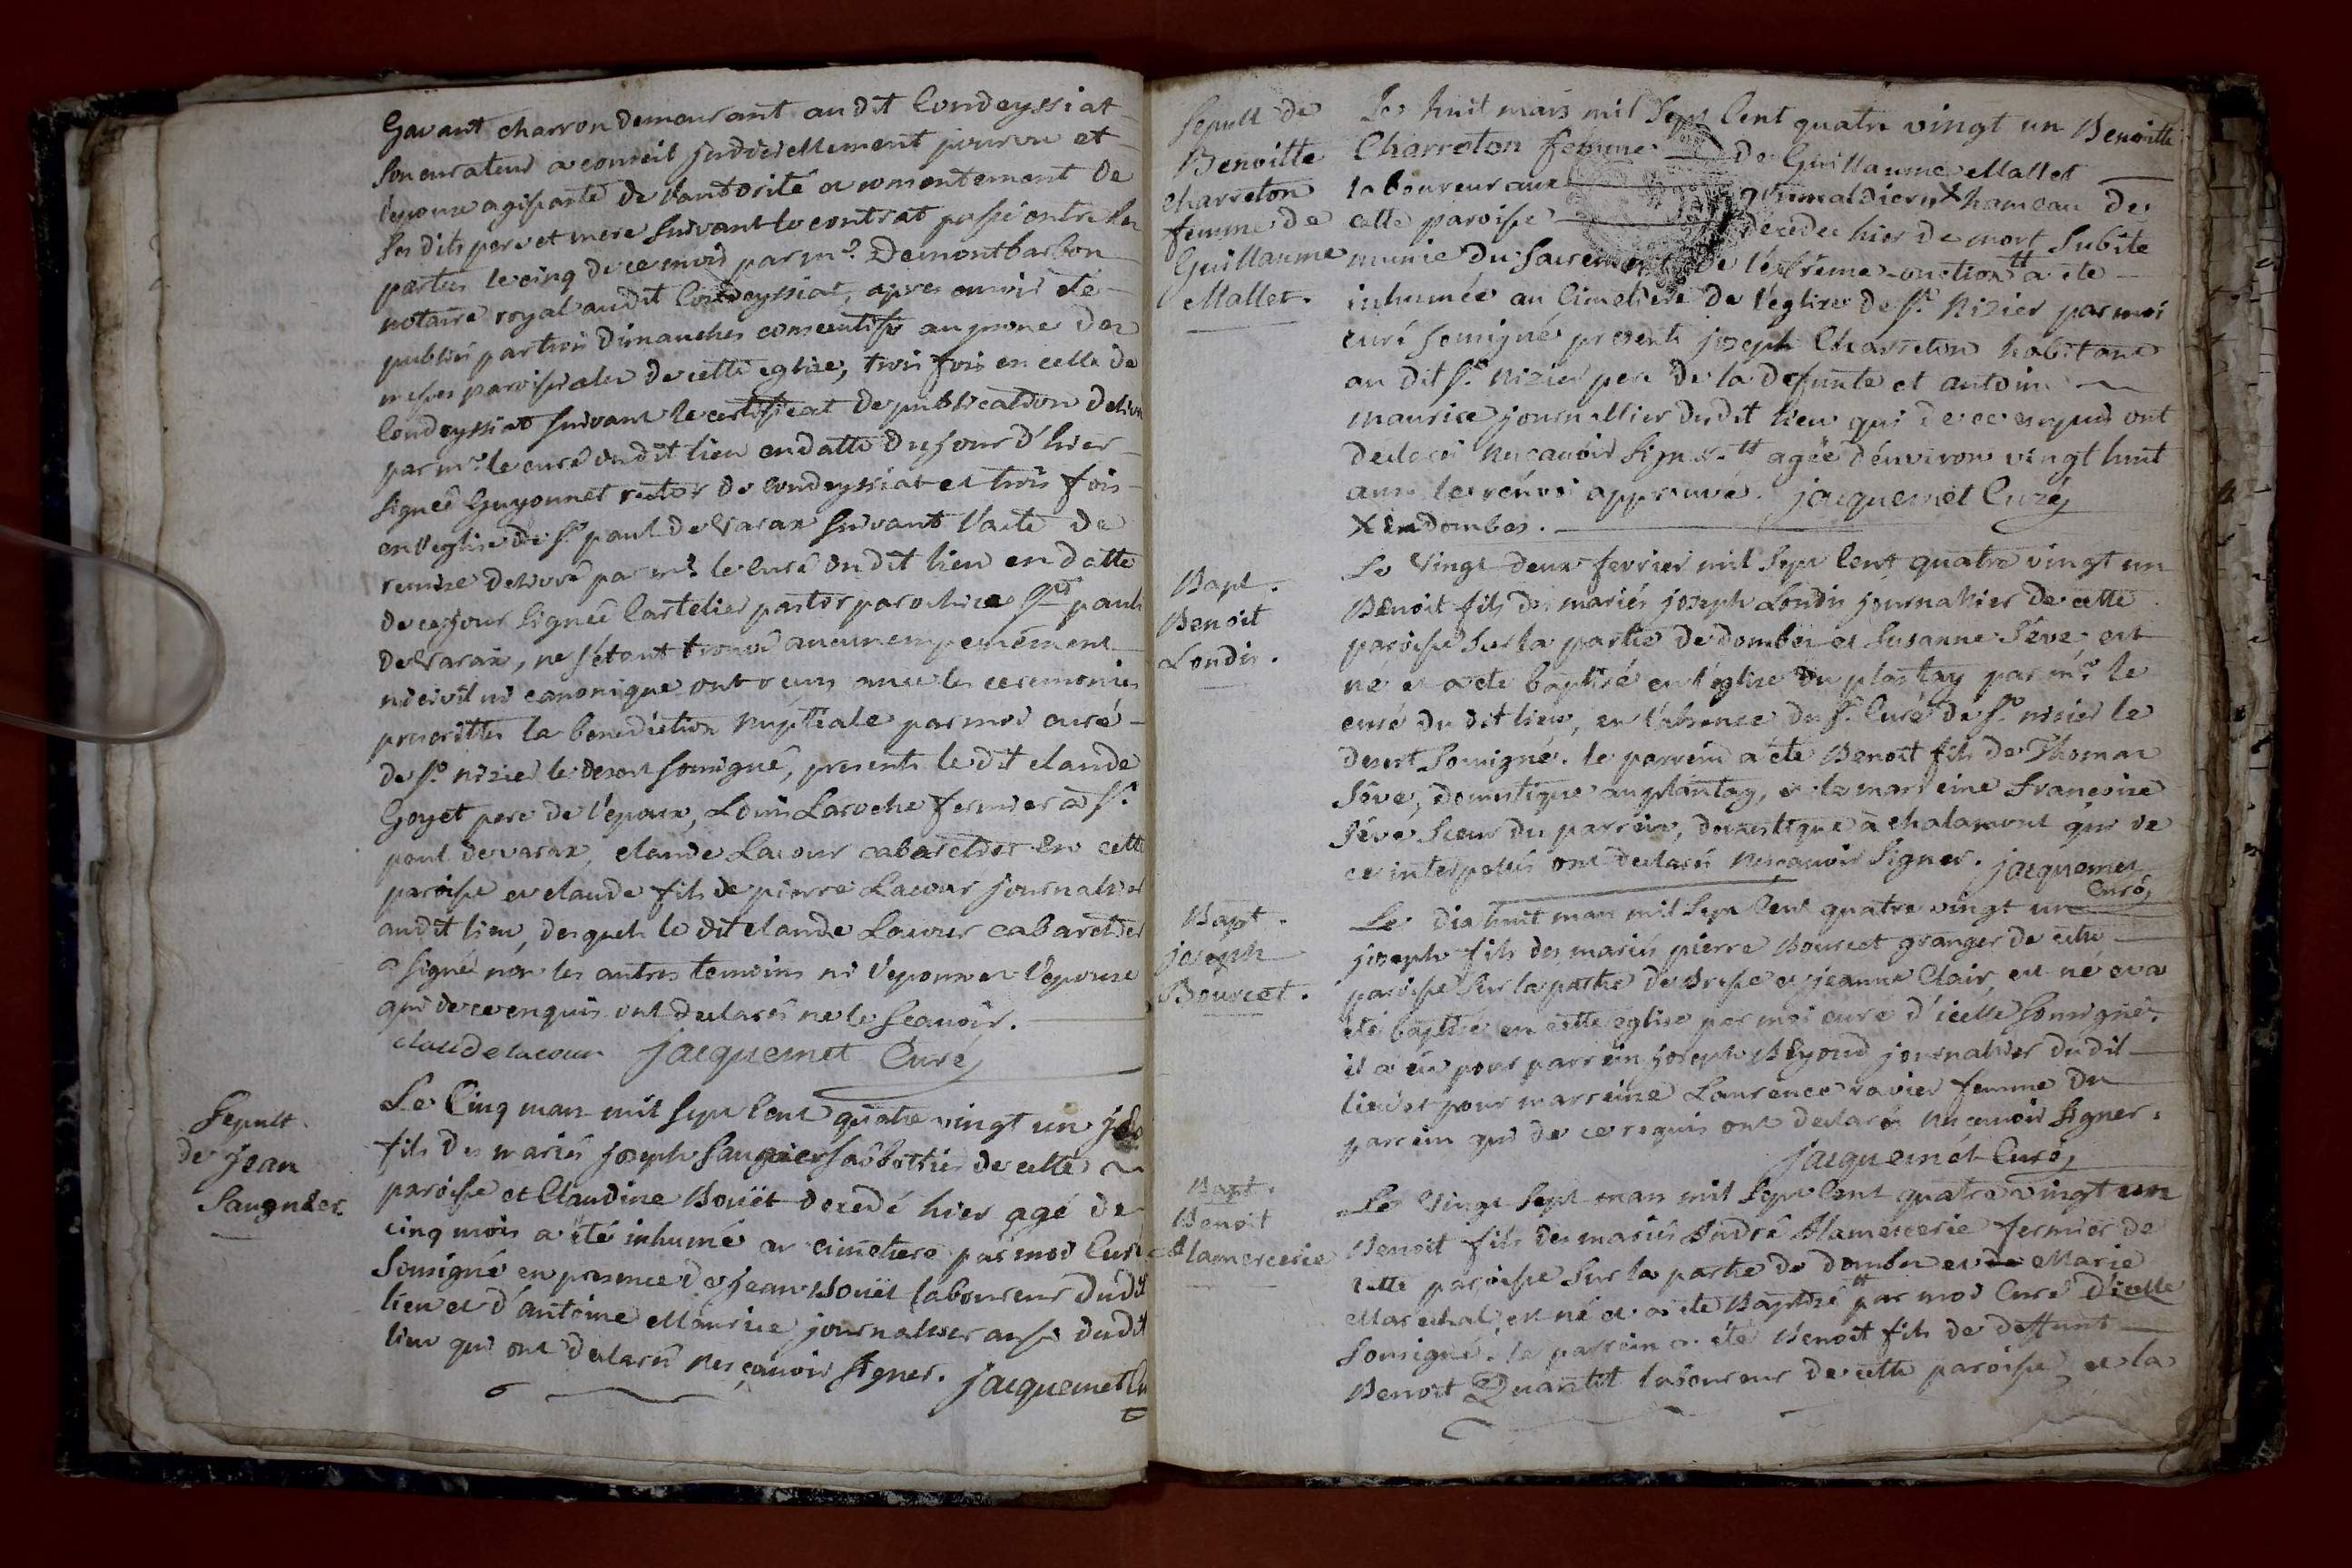 Gavant charron demeurant au dit Condeyssiat
Son curateur a conseil judiciellement pourvu et
l'epouse agissante de l'autorité et consentement de
Ses dits pere et mere Suivant le contrat passé entre les
parties le cinq de ce mois par mr. Demontbarbon
notaire royal au dit Condeyssiat, apres avoir été
publiés par trois Dimanches consecutifs au prone des
messes paroissiales de cette eglise, trois fois en celle de
Condeyssiat Suivant le certificat de publication delivré
par mr. le curé du dit lieu en datte du jour d'hier
Signée Guyonnet rector de Condeyssiat et trois fois
en l'eglise de St. paul de Varax Suivant l'acte de
remise delivré par mr. le Curé du dit lieu en datte
de ce jour Signée Cartelier pastor parochiæ Sti pauli
de Varax, ne s'étant trouvé aucun empechement
ni civil ni canonique ont reçus avec les ceremonies
prescrittes la benediction Nuptiale par moi curé
de St. Nizier le desert Sousigné, presents le dit claude
Goyet pere de l'epoux, Louis Laroche fermier à St.
paul de varax, claude Lacour cabaretier en cette
paroisse et claude fils de pierre Lacour journalier
au dit lieu, desquels le dit claude Lacour cabaretier
a Signé non les autres temoins ni l'epoux et l'epouse
qui de ce enquis ont declarés ne le Scavoir.
claude lacour jacquemet Curé
Sepult.
de jean
Saugnier.
Le Cinq mars mil Sept Cent quatre vingt un
fils des mariés joseph Saugnier Sabbottier de cette
paroisse et Claudine Bouët decedé hier agé de
cinq mois a été inhumé au cimetiere par moi Curé
Sousigné en presence de jean Bouët laboureur dudit
lieu et d'antoine Maurice journalier aussi dudit
lieu qui ont declarés ne sçavoir signer. jacquemet Cu
Sepult de
Benoitte
charreton
femme de
Guillaume
Mallet.
Le huit mars mil Sept Cent quatre vingt un Benoitte
Charreton femme de Guillaume Mallet
laboureur aux grimaldiere X hameau de
cette paroisse decedée hier de mort Subite
munie du Sacrement de l'extrême-onction tt a été
inhumée au Cimetiere de l'eglise de St. Nizier par moi
curé Sousigné presents joseph Charreton habitant
au dit St. Nizier pere de la defunte et antoine
maurice journallier dudit lieu qui de ce enquis ont
declarés ne sçavoir signer. tt agée d'environ vingt huit
ans le renvoi approuvé. jacquemet Curé
X En dombes.
Bapt.
Benoit
Londis.
Le Vingt deux fevrier mil Sept Cent quatre vingt un
Benoit fils des mariés joseph Londis journalier de cette
paroisse Sur la partie de dombes et Susanne Séve est
né et a été baptisé en l'église du plantay par mr. le
curé du dit lieu, en l'absence du Sr. Curé de St. nizier le
desert Sousigné. le parrein a été Benoit fils de Thomas
Séve, domestique au plantay, et la marreine Françoise
Séve Sœur du parrein, domestique à chalamont qui de
ce interpellés ont declarés ne sçavoir Signer. jacquemet
Curé
Bapt.
joseph
Bourcet.
Le dix huit mars mil Sept Cent quatre vingt un
joseph fils des mariés pierre Bourcet granger de cette
paroisse Sur la partie de Bresse et jeanne Clair, est né et a
été baptisé en cette eglise par moi curé d'icelle Sousigné.
il a eu pour parrein joseph Beyoud journalier dudit
lieu et pour marreine Laurence ravier femme du
parrein qui de ce requis ont declarés ne sçavoir Signer.
jacquemet Curé
Bapt.
Benoit
Alamercerie
Le Vingt Sept mars mil Sept Cent quatre vingt un
Benoit fils des mariés André Alamercerie fermier de
cette paroisse Sur la partie de dombes et de Marie
Marechal, est né et a été Baptisé tt par moi Curé d'icelle
Sousigné. le parrein a été Benoit fils de deffunt
Benoit Quantit laboureur de cette paroisse et la